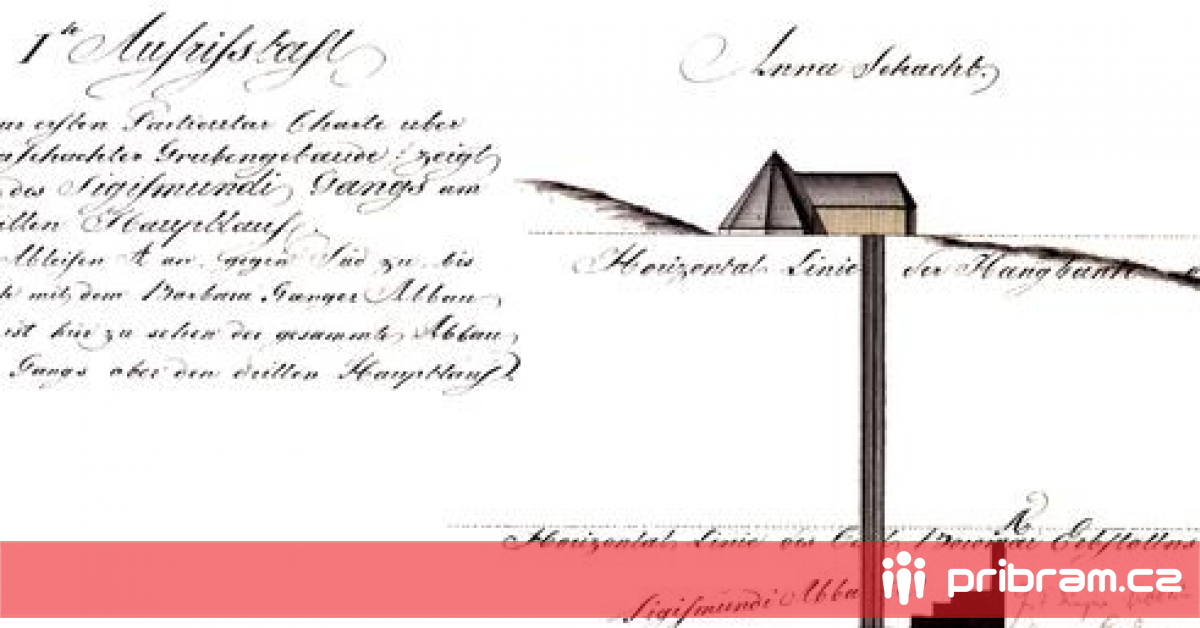 Ite Aufrisskaft
ersten Particular Charte uber
schachter Grubengebäude: zeigt
des Sigismundi Gangs am
dritten Hauptlauf.
A an gegen Süd zu bis
mit dem Barbara Ganger Abbau
ist hier zu sehen der gesammte Abbau
Gangs ober den dritten Hauptlauf
Anna Schacht.
Horizontal Linie der Hangbank
Horizontal Linie des Boromäi Erbstollns
Sigismundi Abba
pribram.cz